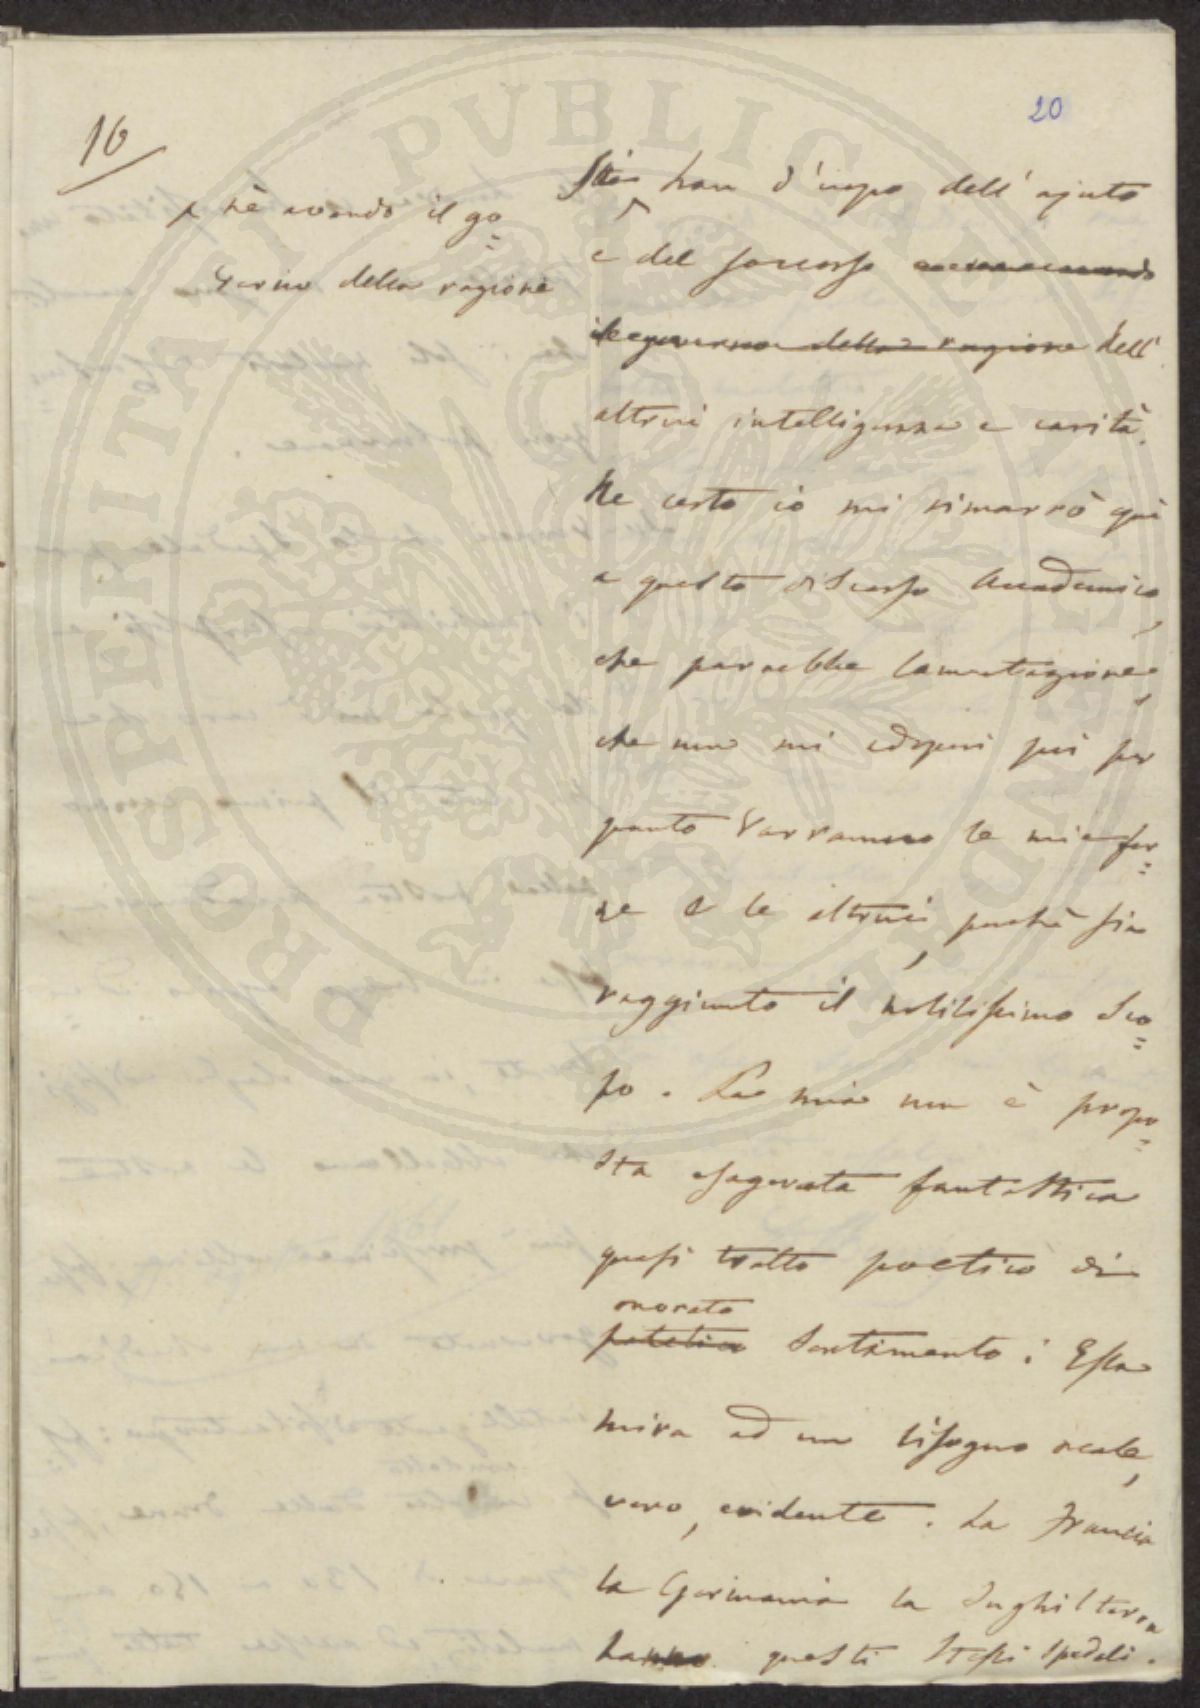 20
16
né avendo il go=
verno della ragione
stia han d'uopo dell'ajuto
e del soccorso
il governo della ragione dell'
altrui intelligenza e carità.
Ne certo io mi rimarrò quì
a questo discorso Accademico,
che parrebbe lamentazione,
che non mi adoperi poi per
quanto varranno le mie for=
ze e le altrui, perchè sia
raggiunto il nobilissimo sco=
po. La mia non è propo=
sta esagerata fantastica
quasi tratto poetico di
onorato
patetico sentimento: Essa
mira ad un bisogno reale,
vero, evidente. La Francia
la Germania la Inghilterra
hanno questi stessi spedali.
PROSPERITATI PVBLICAE